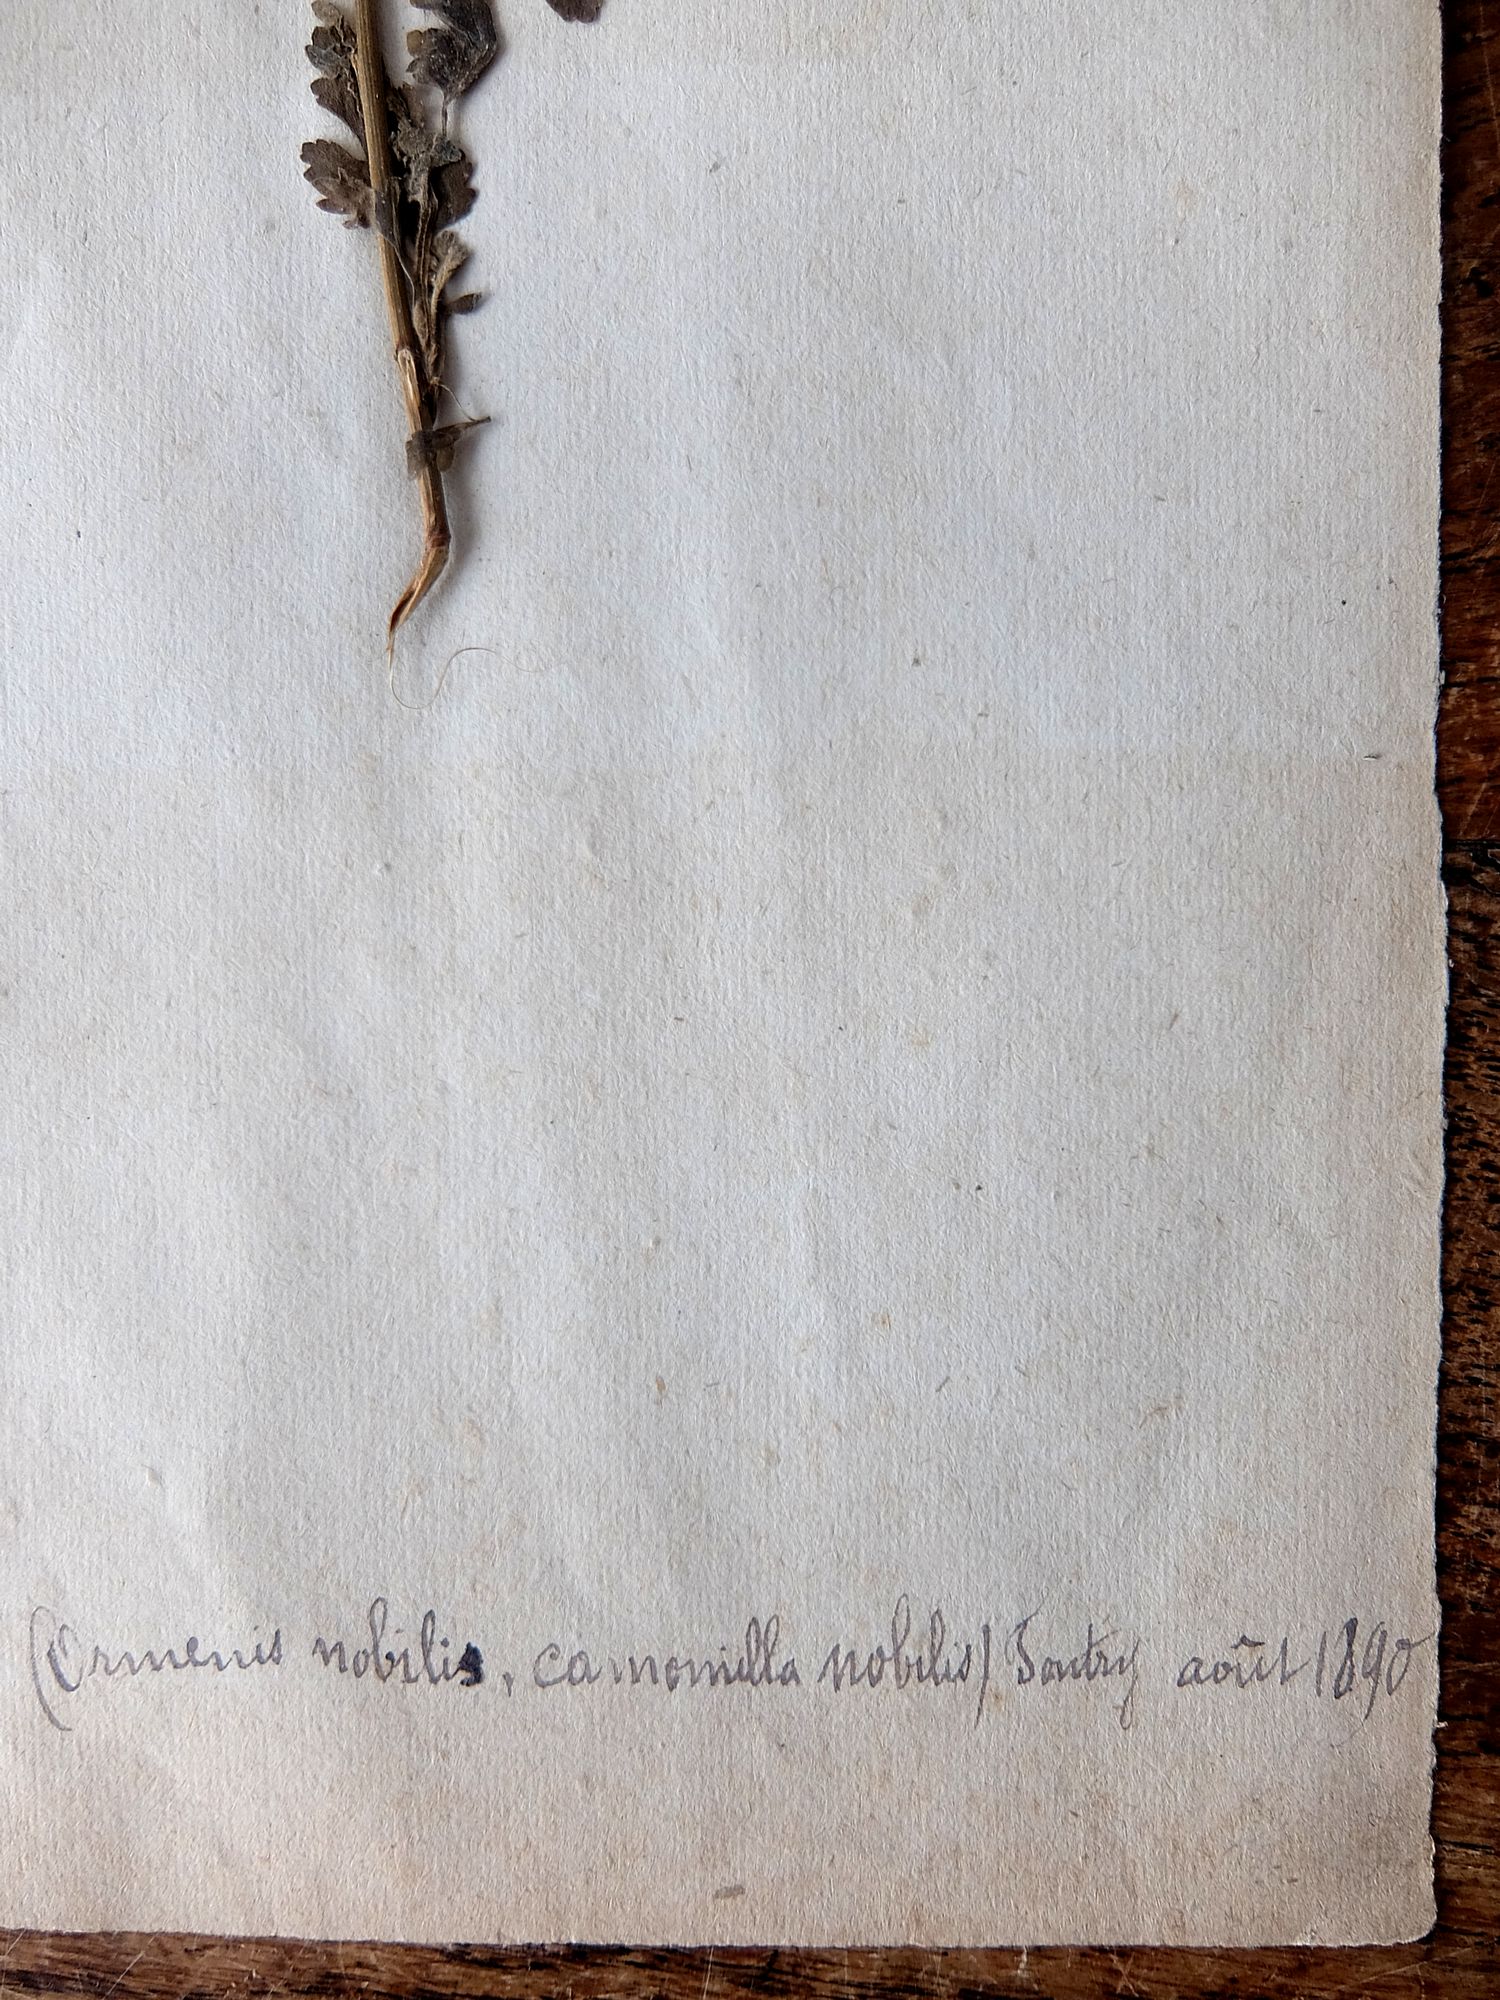 (Ormenis nobilis, camomilla nobilis) août 1890